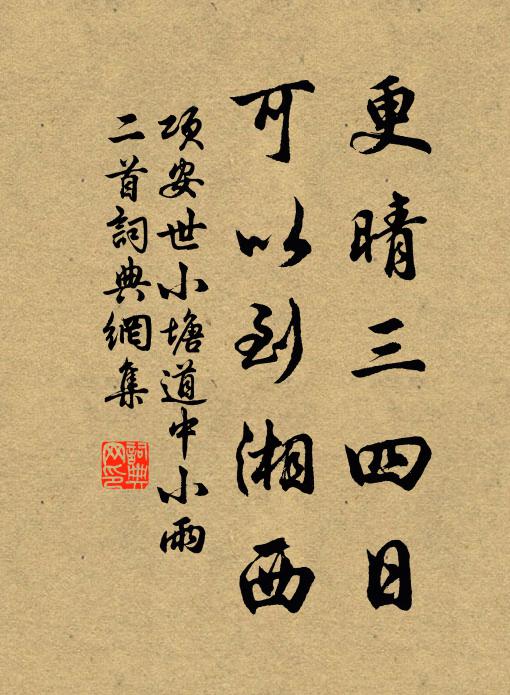 更晴三四日
可以到湘西
項安世小塘道中小雨
二首詞典網集
詞典
网印